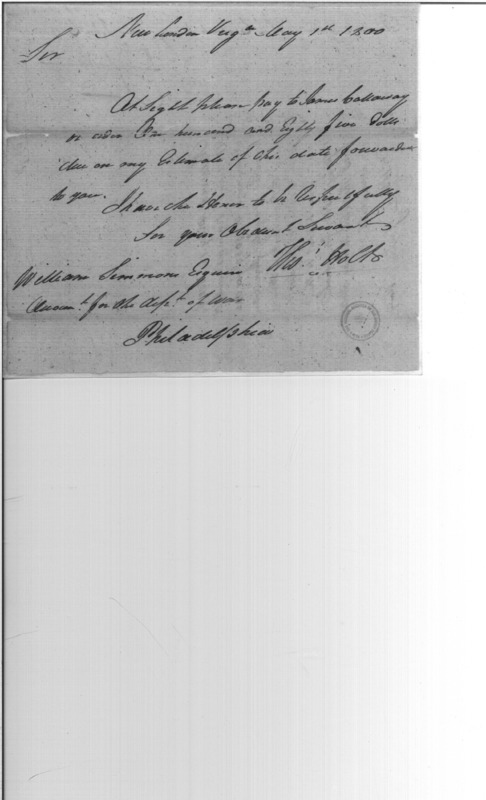 New London Virga. May 1st 1800
Sir
At Sight please pay to James Callaway
or order One hundred and Eighty five Dolls
due on my Estimate of this date forwarded
to you.
I have the Honor to be respectfully
Sir your Obedient Servant
Thos. Holt
William Simmons Esquire
Accomt. for the dept. of War
Philadelphia